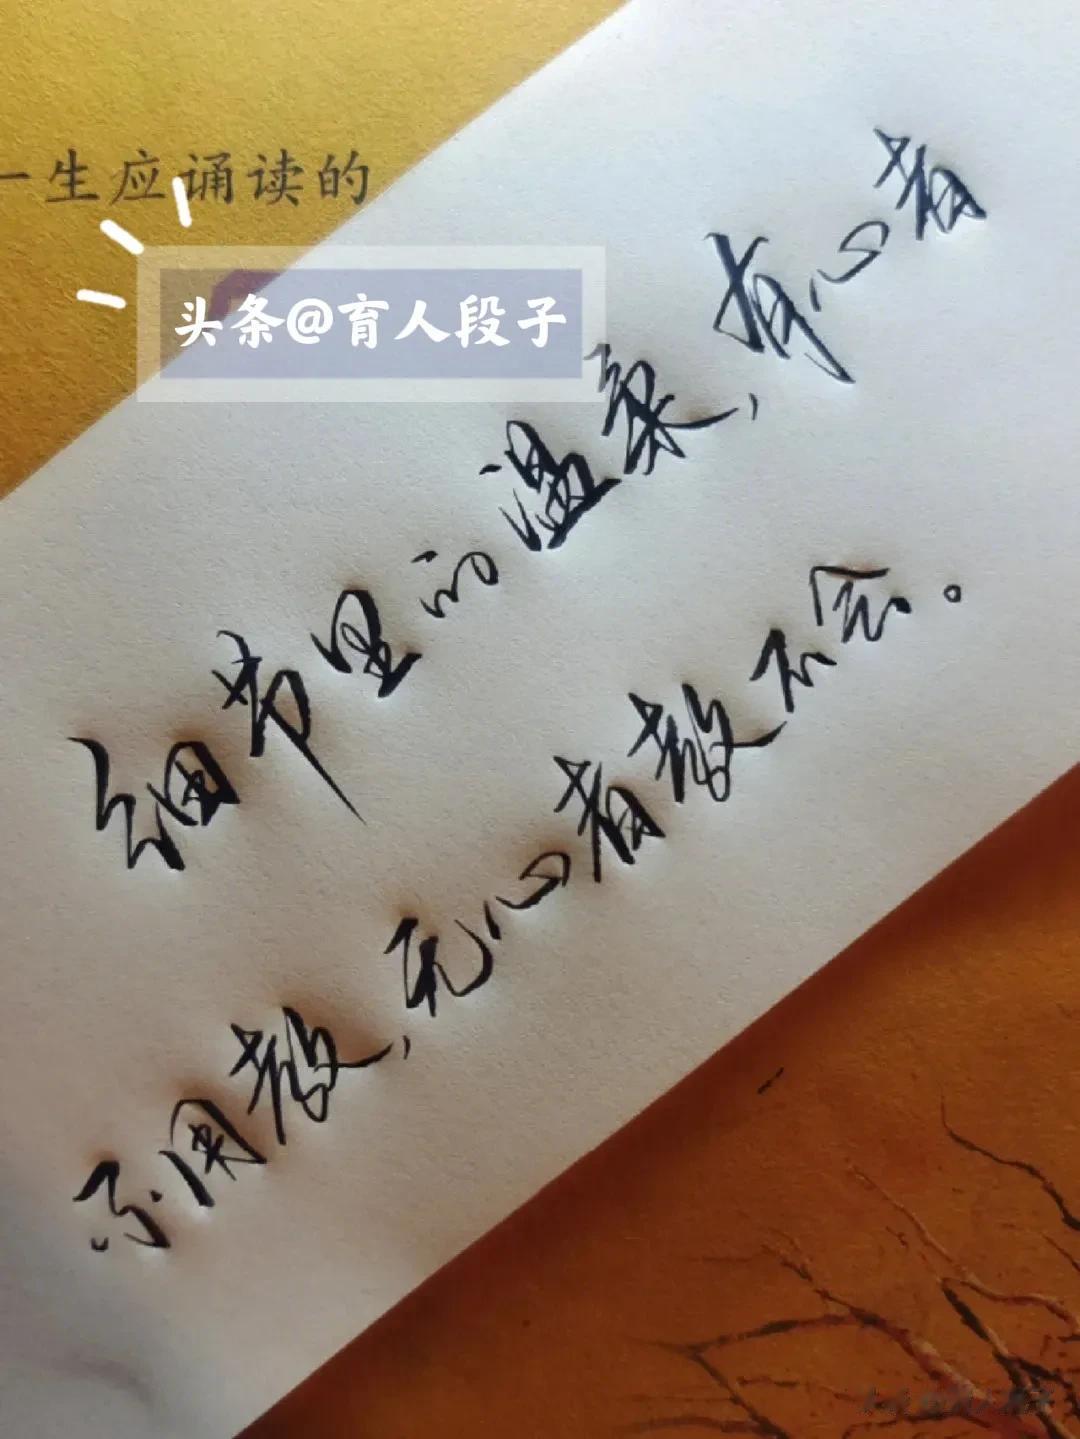 一生应诵读的
头条@育人段子
细节里的温柔，有心者
不用教，无心者教不会。